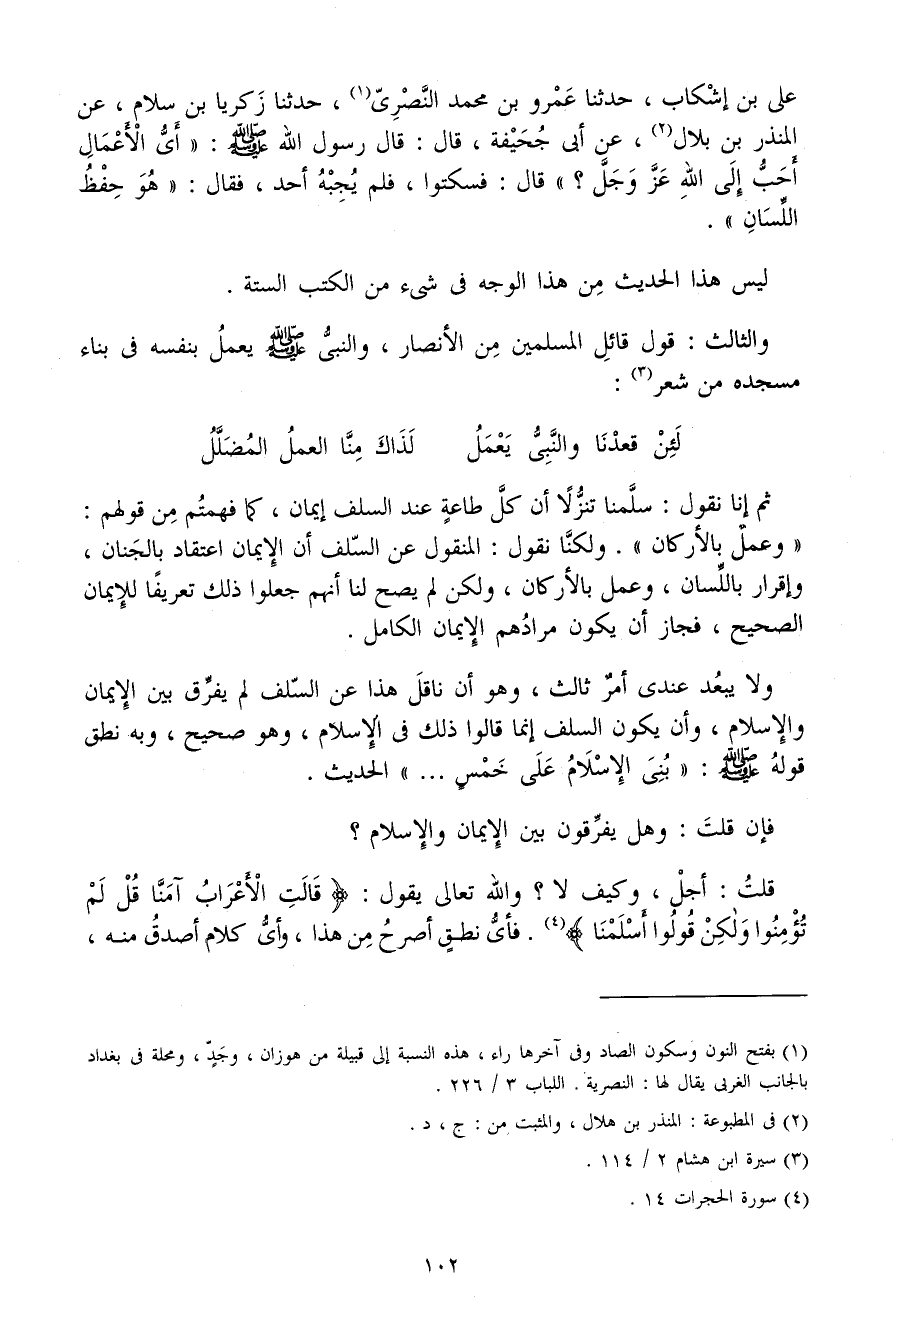 على بن إشْكاب ، حدثنا عَمْرو بن محمد النَّصْرِىّ(١) ، حدثنا زَكريا بن سلام ، عن
المنذر بن بلال(٢) ، عن أبى جُحَيْفة ، قال : قال رسول الله ﷺ : « أَىُّ الْأَعْمَالِ
أَحَبُّ إِلَى اللهِ عَزَّ وَجَلَّ ؟ » قال : فسكتوا ، فلم يُجِبْهُ أحد ، فقال : « هُوَ حِفْظُ
اللِّسَانِ » .
ليس هذا الحديث مِن هذا الوجه فى شىء من الكتب الستة .
والثالث : قول قائلِ المسلمين مِن الأنصار ، والنبىُّ ﷺ يعملُ بنفسه فى بناء
مسجده من شعر(٣) :
لَئِنْ قعدْنَا والنَّبِىُّ يَعْمَلُ لَذَاكَ مِنَّا العملُ المُضَلَّلُ
ثم إنا نقول : سلَّمنا تنزُّلًا أن كلَّ طاعةٍ عند السلف إيمان ، كما فهمتُم مِن قولهم :
« وعملٌ بالأركان » . ولكنَّا نقول : المنقول عن السّلف أن الإيمان اعتقاد بالجَنان ،
وإقرار باللِّسان ، وعمل بالأركان ، ولكن لم يصح لنا أنهم جعلوا ذلك تعريفًا للإيمان
الصحيح ، فجاز أن يكون مرادُهم الإيمان الكامل .
ولا يبعُد عندى أمرٌ ثالث ، وهو أن ناقلَ هذا عن السّلف لم يفرِّق بين الإيمان
والإسلام ، وأن يكون السلف إنما قالوا ذلك فى الإسلام ، وهو صحيح ، وبه نطق
قولهُ ﷺ : « بُنِىَ الإِسْلَامُ عَلَى خَمْسٍ ... » الحديث .
فإن قلتَ : وهل يفرِّقون بين الإيمان والإسلام ؟
قلتُ : أجلْ ، وكيف لا ؟ والله تعالى يقول : ﴿ قَالَتِ الْأَعْرَابُ آمَنَّا قُل لَمْ
تُؤْمِنُوا وَلٰكِنْ قُولُوا أَسْلَمْنَا ﴾(٤) . فأىُّ نطقٍ أصرحُ مِن هذا ، وأىُّ كلام أصدقُ منه ،
(١) بفتح النون وسكون الصاد وفى آخرها راء ، هذه النسبة إلى قبيلة من هوزان ، وجَدٍّ ، ومحلة فى بغداد
بالجانب الغربى يقال لها : النصرية . اللباب ٣ / ٢٢٦ .
(٢) فى المطبوعة : المنذر بن هلال ، والمثبت من : ج ، د .
(٣) سيرة ابن هشام ٢ / ١١٤ .
(٤) سورة الحجرات ١٤ .
١٠٢